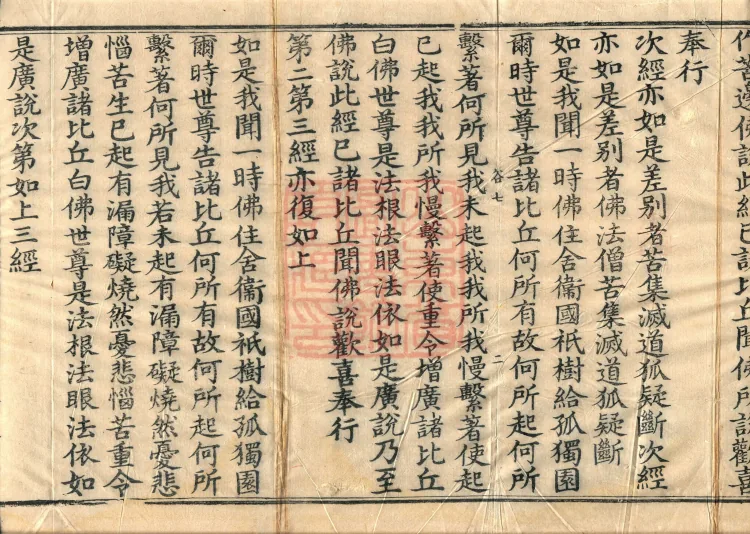 作苦邊佛說此經已諸比丘聞佛所說歡喜
奉行
次經亦如是差別者苦集滅道狐疑斷次經
亦如是差別者佛法僧苦集滅道狐疑斷
如是我聞一時佛住舍衞國祇樹給孤獨園
爾時世尊告諸比丘何所有故何所起何所
谷七 二
繫著何所見我未起我我所我慢繫著使起
已起我我所我慢繫著使重令增廣諸比丘
白佛世尊是法根法眼法依如是廣說乃至
佛說此經已諸比丘聞佛說歡喜奉行
第二第三經亦復如上
如是我聞一時佛住舍衞國祇樹給孤獨園
爾時世尊告諸比丘何所有故何所起何所
繫著何所見我若未起有漏障礙燒然憂悲
惱苦生已起有漏障礙燒然憂悲惱苦重令
增廣諸比丘白佛世尊是法根法眼法依如
是廣說次第如上三經